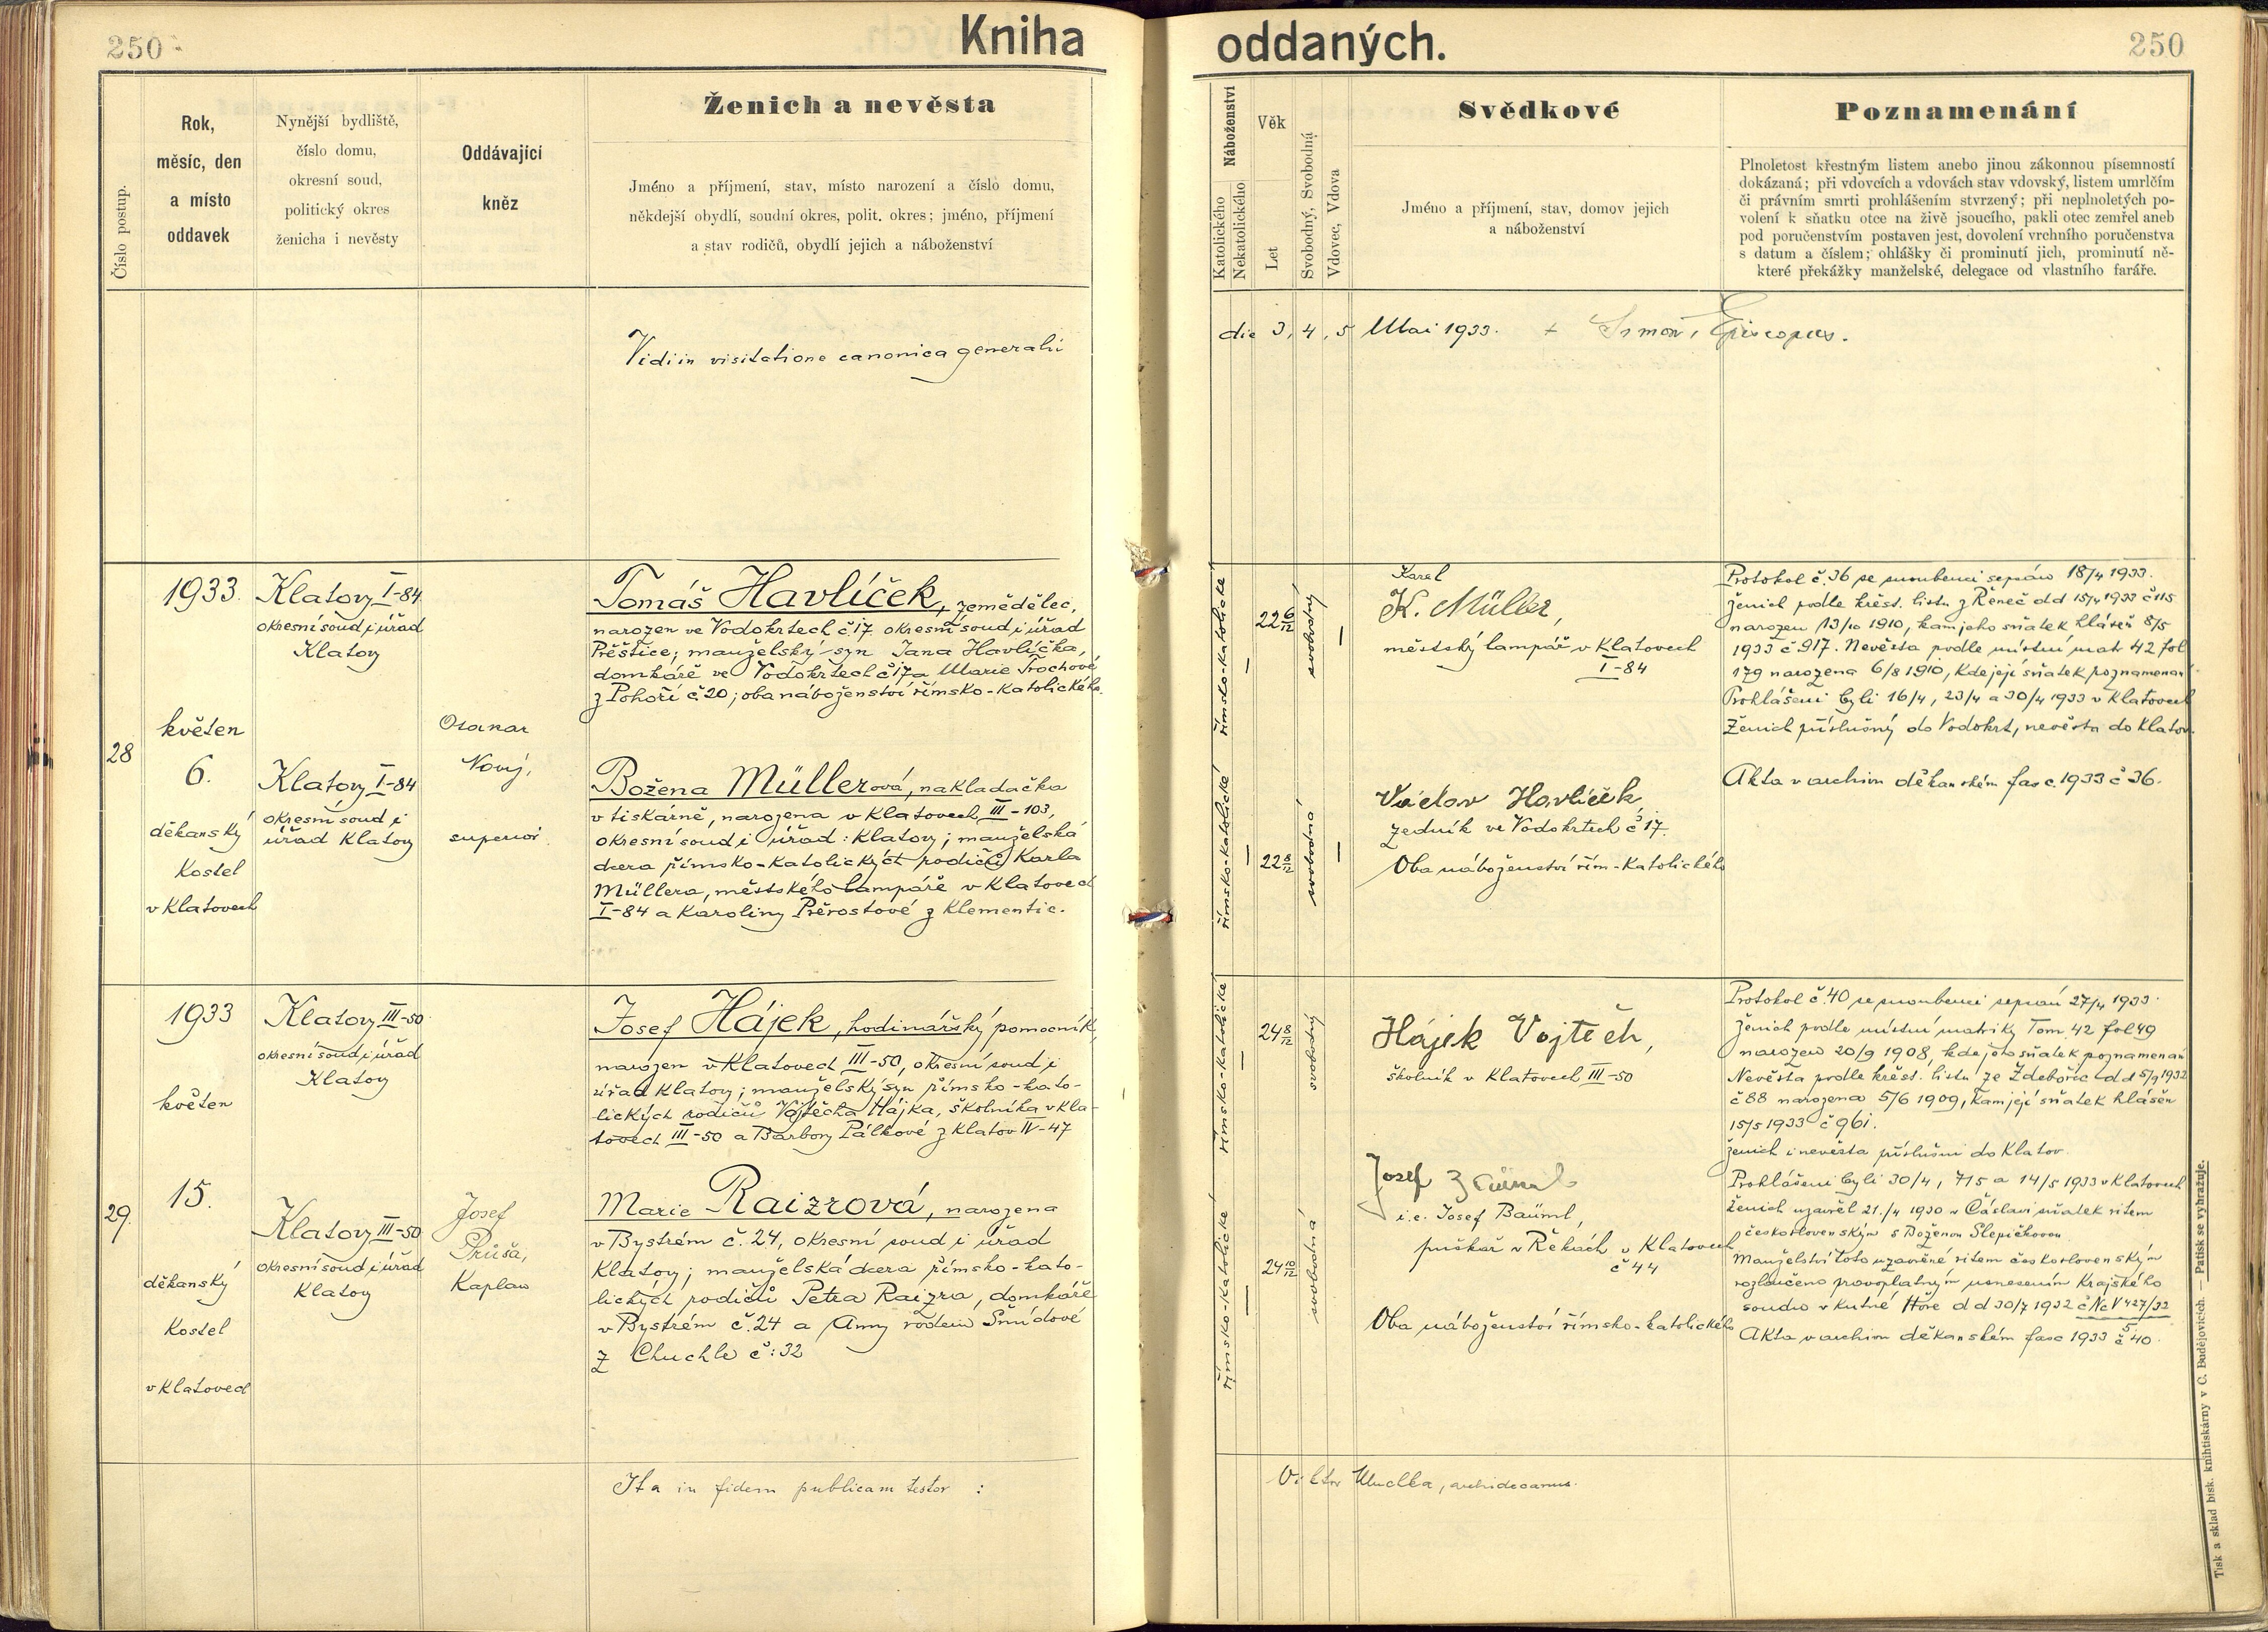 250
Kniha
oddaných.
250
Číslo postup.
Rok,
měsíc, den
a místo
oddavek
Nynější bydliště,
číslo domu,
okresní soud,
politický okres
ženicha i nevěsty
Oddávající
kněz
Ženich a nevěsta
Jméno a příjmení, stav, místo narození a číslo domu,
někdejší obydlí, soudní okres, polit. okres; jméno, příjmení
a stav rodičů, obydlí jejich a náboženství
Náboženství
Katolického
Nekatolického
Věk
Let
Svobodný, Svobodná
Vdovec, Vdova
Svědkové
Jméno a příjmení, stav, domov jejich
a náboženství
Poznamenání
Plnoletost křestným listem anebo jinou zákonnou písemností
dokázaná; při vdovcích a vdovách stav vdovský, listem umrlčím
či právním smrti prohlášením stvrzený; při neplnoletých po-
volení k sňatku otce na živě jsoucího, pakli otec zemřel aneb
pod poručenstvím postaven jest, dovolení vrchního poručenstva
s datum a číslem; ohlášky či prominutí jich, prominutí ně-
které překážky manželské, delegace od vlastního faráře.
Vidi in visitatione canonica generali
die 3, 4, 5 Mai 1933. + Šimon, Episcopus.
28
1933.
květen
6.
děkanský
kostel
v Klatovech
Klatovy I-84
okresní soud i úřad
Klatovy
Klatovy I-84
okresní soud i
úřad Klatovy
Nový,
superior.
Tomáš Havlíček, zemědělec,
narozen ve Vodokrtech č. 17. okresní soud i úřad
Přeštice; manželský syn Jana Havlíčka,
domkáře ve Vodokrtech č 17 a Marie Trochové
z Pohoří č 20; oba náboženství římsko-katolického.
Božena Müllerová, nakladačka
v tiskárně, narozena v Klatovech III-103,
okresní soud i úřad: Klatovy; manželská
dcera římsko-katolických rodičů Karla
Müllera, městského lampáře v Klatovech
I-84 a Karoliny Přerostové z Klementic.
římsko-katolické
22 6/12
svobodný
římsko-katolické
22 8/12
svobodná
Karel
K. Müller,
městský lampář v Klatovech
I-84
Václav Havlíček,
zedník ve Vodokrtech č 17.
Oba náboženství řím-katolického
Protokol č. 36 se snoubenci sepsán 18/4 1933.
Ženich podle křest. listu z Řeneč d d 15/4 1933 č 115
narozen 13/10 1910, kam jeho sňatek hlášen 8/5
1933 č. 917. Nevěsta podle místní matr 42 fol
179 narozena 6/8 1910, kde její sňatek poznamenán
Prohlášeni byli 16/4, 23/4 a 30/4 1933 v Klatovech
Ženich příslušný do Vodokrt, nevěsta do Klatov.
Akta v archivu děkanském fasc. 1933 č 36.
29.
1933
květen
15.
děkanský
kostel
v Klatovech
Klatovy III-50
okresní soud i úřad
Klatovy
Klatovy III-50
okresní soud i úřad
Klatovy
Josef
Průša,
Kaplan
Josef Hájek, hodinářský pomocník,
narozen v Klatovech III-50, okresní soud i
úřad Klatovy; manželský syn římsko-kato-
lických rodičů Vojtěcha Hájka, školníka v Kla-
tovech III-50 a Barbory Pálkové z Klatov IV-47
Marie Raizrová, narozena
v Bystrém č. 24, okresní soud i úřad
Klatovy; manželská dcera římsko-kato-
lických rodičů Petra Raizra, domkáře
v Bystrém č. 24 a Anny rodem Šmídové
z Chuchle č: 32
římsko-katolické
24 8/12
svobodný
římsko-katolické
24 10/12
svobodná
Hájek Vojtěch,
školník v Klatovech III-50
Josef
i. e. Josef Bäuml,
puškař v Klatovech
č 44
Oba náboženství římsko-katolického
Protokol č. 40 se snoubenci sepsán 27/4 1933.
Ženich podle místní matriky Tom. 42 fol 49
narozen 20/9 1908, kde jeho sňatek poznamenán
Nevěsta podle křest. listu ze Zdebořic d d 5/9 1932
č 88 narozena 5/6 1909, kam její sňatek hlášen
15/5 1933 č 961.
Ženich i nevěsta příslušni do Klatov.
Prohlášeni byli 30/4, 7/5 a 14/5 1933 v Klatovech
Ženich uzavřel 21./4 1930 v Čáslavi sňatek ritem
československým s Boženou Slepičkovou.
Manželství toto uzavřené ritem československým
rozloučeno pravoplatným usnesením Krajského
soudu v Kutné Hoře d d 30/7 1932 č Nc V 427/32
5
Akta v archivu děkanském fasc 1933 č 40.
Ita in fidem publicam testor :
Viktor archidecanus.
Tisk a sklad bisk. knihtiskárny v C. Budějovicích. — Patisk se vyhražuje.